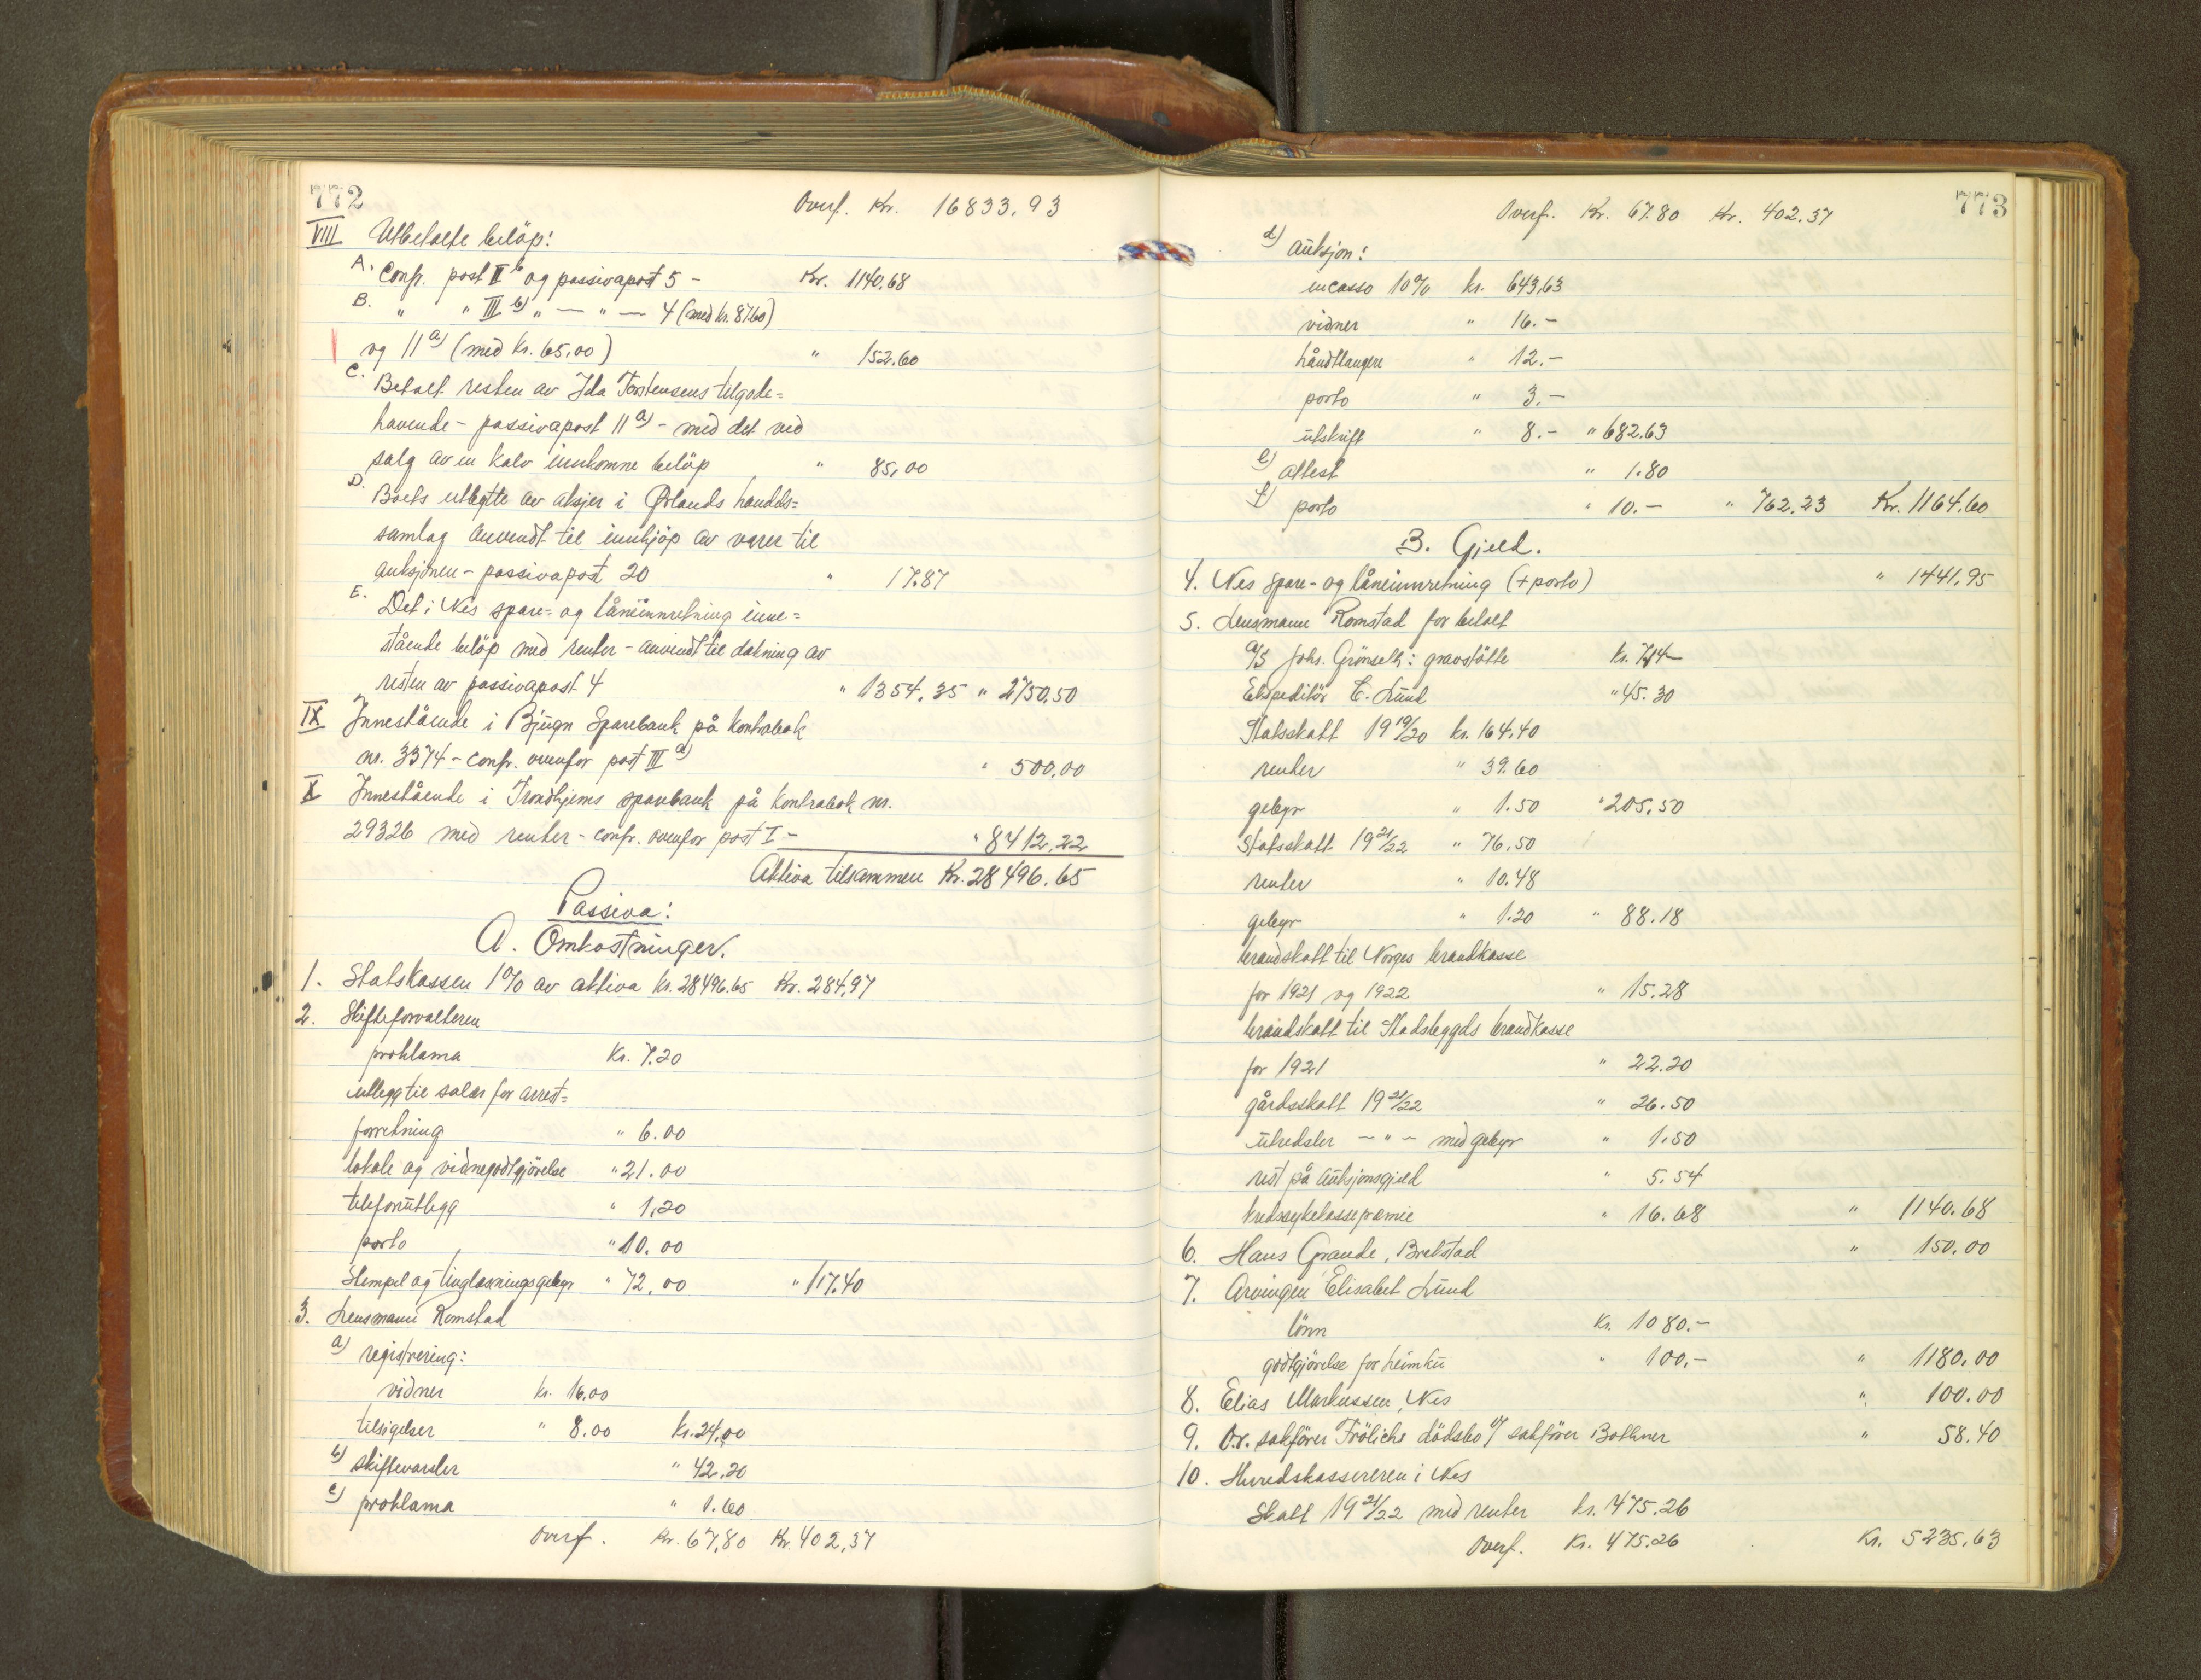 772
Overf. Kr. 16833,93
VIII Utbetalte beløp:
A. Confr. post II b og passivapost 5 - Kr. 1140.68
B. " " III b) " — " — 4 (med kr. 87.60)
og 11 a) (med kr. 65,00) " 152.60
C. Betalt resten av Ida Torstensens tilgode=
havende - passivapost 11 a) - med det ved
salg av en kalv innkomne beløp " 85,00
D. Boets utbytte av aksjer i Ørlands handels=
samlag anvendt til innkjøp av varer til
auksjonen - passivapost 20 " 17.87
E. Det i Nes spare- og låneinnretning inne=
stående beløp med renter - anvendt til dekning av
resten av passivapost 4 " 1354,35 " 2750,50
IX Innestående i Bjugn Sparebank på kontrabok
nr. 3374 - confr. ovenfor post III a) " 500,00
X Innestående i Trondhjems sparebank på kontrabok nr.
29326 med renter - confr. ovenfor post I - " 8412,22
Aktiva tilsammen Kr. 28496.65
Passiva:
A. Omkostninger.
1. Statskassen 1% av aktiva kr. 28496.65 Kr. 284,97
2. Skifteforvalteren
proklama Kr. 7.20
utlegg til salær for arrest=
forretning " 6.00
lokale og vidnegodtgjörelse " 21.00
telefonutlegg " 1,20
porto " 10.00
Stempel og tinglæsningsgebyr " 72,00 " 117.40
3. Lensmann Romstad
a) registrering:
vidner kr. 16,00
tilsigelser " 8.00 kr. 24,00
b) skiftevarsler " 42,20
c) proklama " 1.60
Overf. Kr. 67,80 Kr. 402,37
773
Overf. Kr. 67.80 Kr. 402.37
d) auksjon:
incasso 10% kr. 643,63
vidner " 16.-
håndtlangere " 12.-
porto " 3.-
utskrift " 8.- " 682.63
e) attest " 1.80
f) porto " 10.- " 762,23 Kr. 1164.60
B. Gjeld.
4. Nes spare- og låneinnretning (+ porto) " 1441,95
5. Lensmann Romstad for betalt
A/S Johs. Grönseth: gravstötte kr. 714-
Ekspeditör E. Lund " 45.30
Statsskatt 19 19/20 kr. 164,40
renter " 39.60
gebyr " 1.50 " 205,50
Statsskatt 19 21/22 " 76,50
renter " 10.48
gebyr " 1.20 " 88.18
brandskatt til Norges brandkasse
for 1921 og 1922 " 15.28
brandskatt til Stadsbygds brandkasse
for 1921 " 22.20
gårdsskatt 19 21/22 " 26.50
utredsler - " - med gebyr " 1.50
rest på auksjonsgjeld " 5.54
kredssykekassepræmie " 16.68 " 1140.68
6. Hans Grande, Brekstad " 150.00
7. Arvingen Elisabet Lund
lönn kr. 1080.-
godtgjörelse for heimku " 100,- " 1180.00
8. Elias Markussen, Nes " 100.00
9. O.r. sakförer Frölichs dödsbo v/ sakförer Bothner " 58.40
10. Herredskassereren i Nes
Skatt 19 21/22 med renter kr. 475,26
Overf. Kr. 475.26 Kr. 5235,63